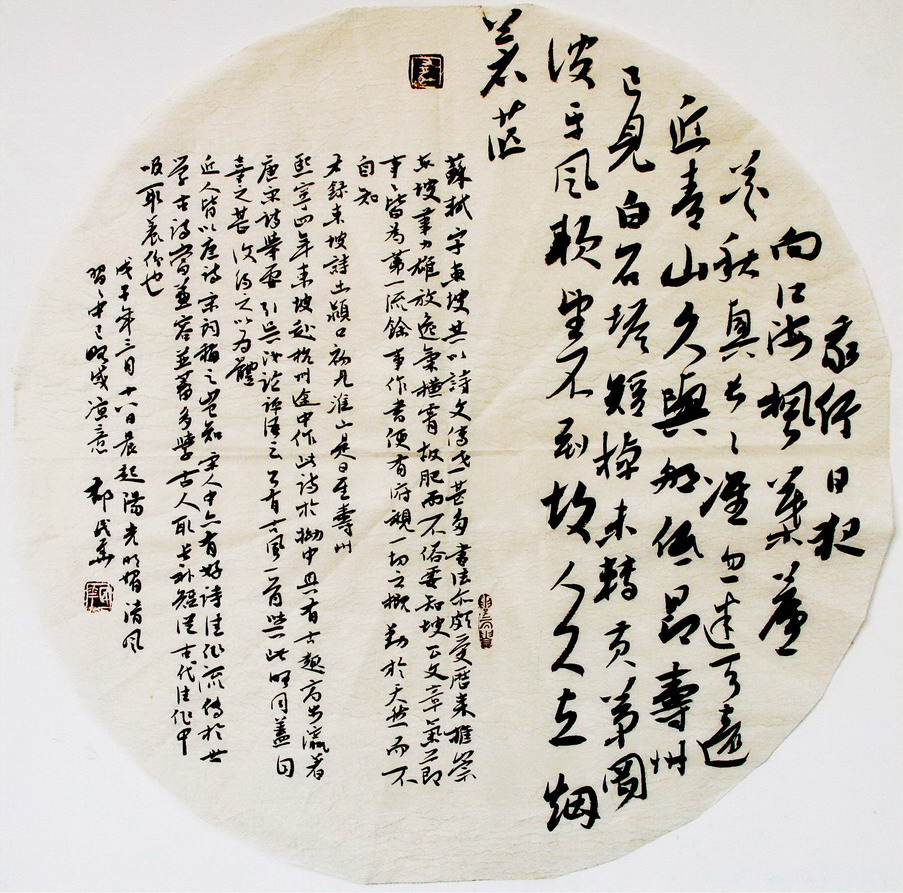 我行日夜
向江海楓葉蘆
花秋興長長淮忽迷天遠
近青山久與船低昂壽州
已見白石塔短棹未轉黃茅岡
波平風軟望不到故人久立烟
蒼茫
蘇軾字東坡其以詩文傳世甚多書法亦頗受歷來推崇
東坡筆力雄放逸氣橫霄故肥而不俗要知坡公文章氣節
事事皆為第一流餘事作書便有俯視一切之概動於天然而不
自知
右錄東坡詩出潁口初見淮山是日至壽州
熙寧四年東坡赴杭州途中作此詩於拗中具有古趣高步瀛著
唐宋詩舉要引吳汝綸評語云公有古風一首與此略同蓋自
喜之甚復約之以為體
近人皆以唐詩宋詞稱之豈知宋人中亦有好詩佳作流傳於世
學古詩當兼容並蓄多學古人取長補短從古代佳作中
吸取養份也
戊子年三月十八日晨起陽光明媚清風
習習中已略感涼意